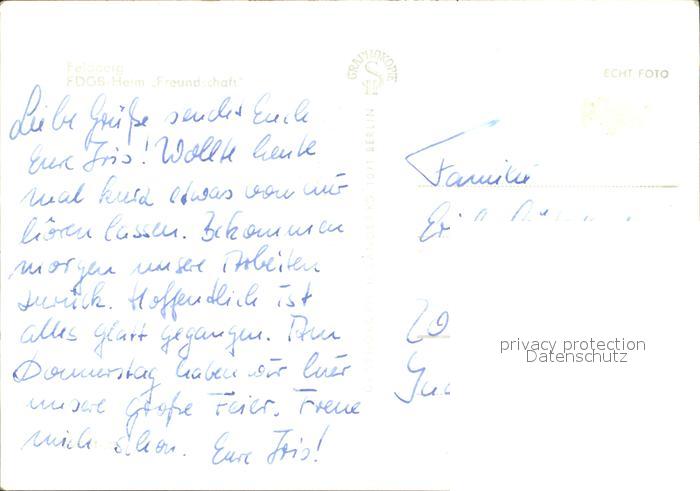 Feldberg
FDGB-Heim „Freundschaft"
GRAPHOKOPIE
ECHT FOTO
Liebe Grüße sendet Euch
Eure Iris! Wollte heute
mal kurz etwas von mir
hören lassen. Bekommen
morgen unsere Arbeiten
zurück. Hoffentlich ist
alles glatt gegangen. Am
Donnerstag haben wir hier
unsere große Feier. Freue
mich schon. Eure Iris!
Familie
20
privacy protection
Datenschutz